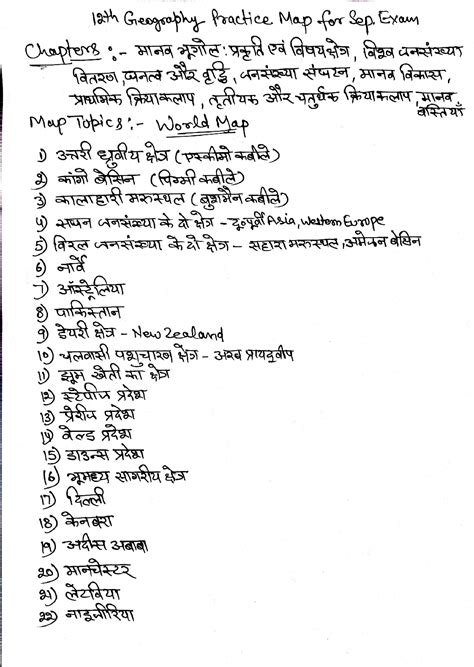 12th Geography Practice Map for Sep. Exam
Chapters :- मानव भूगोल: प्रकृति एवं विषयक्षेत्र, विश्व जनसंख्या
वितरण, घनत्व और वृद्धि, जनसंख्या संघटन, मानव विकास,
प्राथमिक क्रियाकलाप, तृतीयक और चतुर्थक क्रियाकलाप, मानव
बस्तियाँ
Map Topics:- World Map
1) उत्तरी ध्रुवीय क्षेत्र (एस्कीमो कबीले)
2) कांगो बेसिन (पिग्मी कबीले)
3) कालाहारी मरुस्थल (बुशमैन कबीले)
4) सघन जनसंख्या के दो क्षेत्र - द०पूर्वी Asia, Western Europe
5) विरल जनसंख्या के दो क्षेत्र - सहारा मरुस्थल, अमेजन बेसिन
6) नार्वे
7) ऑस्ट्रेलिया
8) पाकिस्तान
9) डेयरी क्षेत्र - New Zealand
10) चलवासी पशुचारण क्षेत्र - अरब प्रायद्वीप
11) झूम खेती का क्षेत्र
12) स्टेपीज प्रदेश
13) प्रेरीज प्रदेश
14) वेल्ड प्रदेश
15) डाउन्स प्रदेश
16) भूमध्य सागरीय क्षेत्र
17) दिल्ली
18) केनबरा
19) अदीस अबाबा
20) मानचेस्टर
21) लेटविया
22) नाइजीरिया